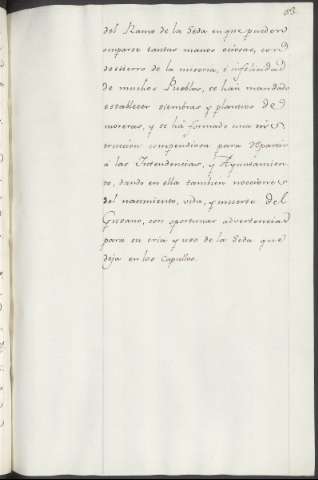 del Ramo de la Seda en que pueden
ocuparse tantas manos ociosas, con
destierro de la miseria, é infelicidad
de muchos Pueblos, se han mandado
establecer siembras y planteos de
moreras, y se há formado una ins-
truccion compendiosa para repartir
á las Intendencias, y Ayuntamien-
to, dando en ella tambien nocciones
del nacimiento, vida, y muerte del
Gusano, con oportunas advertencias
para su cria y uso de la Seda que
deja en los Capullos.